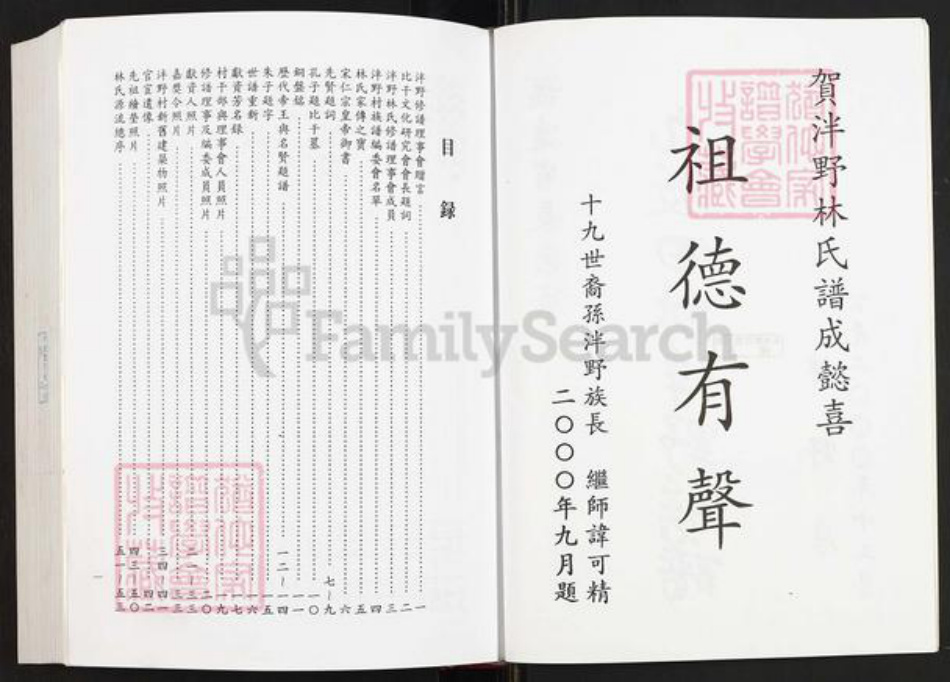 賀泮野林氏譜成懿喜
祖德有聲
十九世裔孫泮野族長 繼師諱可精
二〇〇〇年九月題
目錄
泮野修譜理事會贈言 一
比干文化研究會會長題詞 二
泮野林氏修譜理事會成員 三
泮野村族譜編委會名單 四
林氏家傳之寶 五
宋仁宗皇帝御書 六
先賢題詞 七~九
孔子題比干墓 一〇
銅盤銘 一一
歷代帝王與名賢題譜 一二~一四
朱子題字 一五
世譜重新 一六
獻資芳名錄 一七
村干部與理事會人員照片 一九
修譜理事及編委成員照片 二〇
獻資人照片 二一~三三
嘉獎令照片 三三
泮野村新舊建築物照片 三四~四一
官宦遺像 四二
先祖繪瑩照片 四三~五〇
林氏源流總序 五一~五三
一
FamilySearch